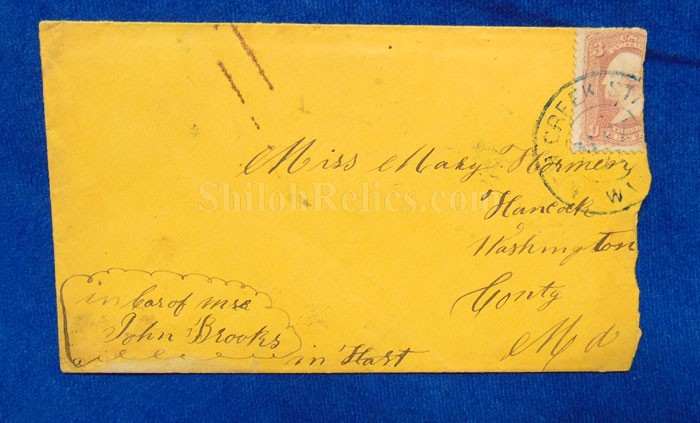 3
CREEK STA
W
Miss Mary
Hancock
Washington
Conty
Md
ShilohRelics.com
in Car of Mrs
John Brooks
in Hast